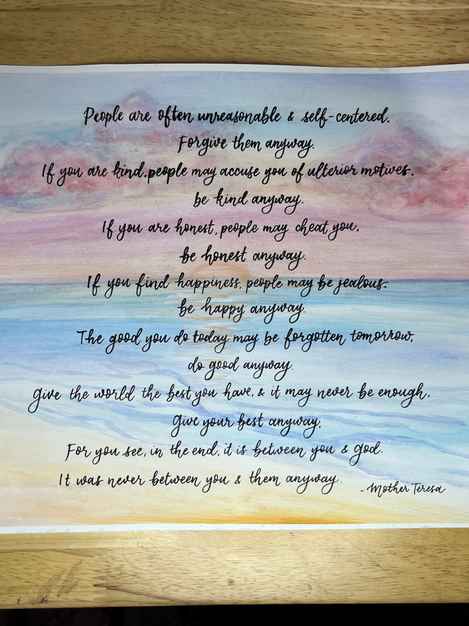 People are often unreasonable & self-centered.
Forgive them anyway.
If you are kind, people may accuse you of ulterior motives.
be kind anyway.
If you are honest, people may cheat you,
be honest anyway.
If you find happiness, people may be jealous.
be happy anyway.
The good you do today may be forgotten tomorrow,
do good anyway.
Give the world the best you have, & it may never be enough,
Give your best anyway,
For you see, in the end, it is between you & god.
It was never between you & them anyway.
- Mother Teresa